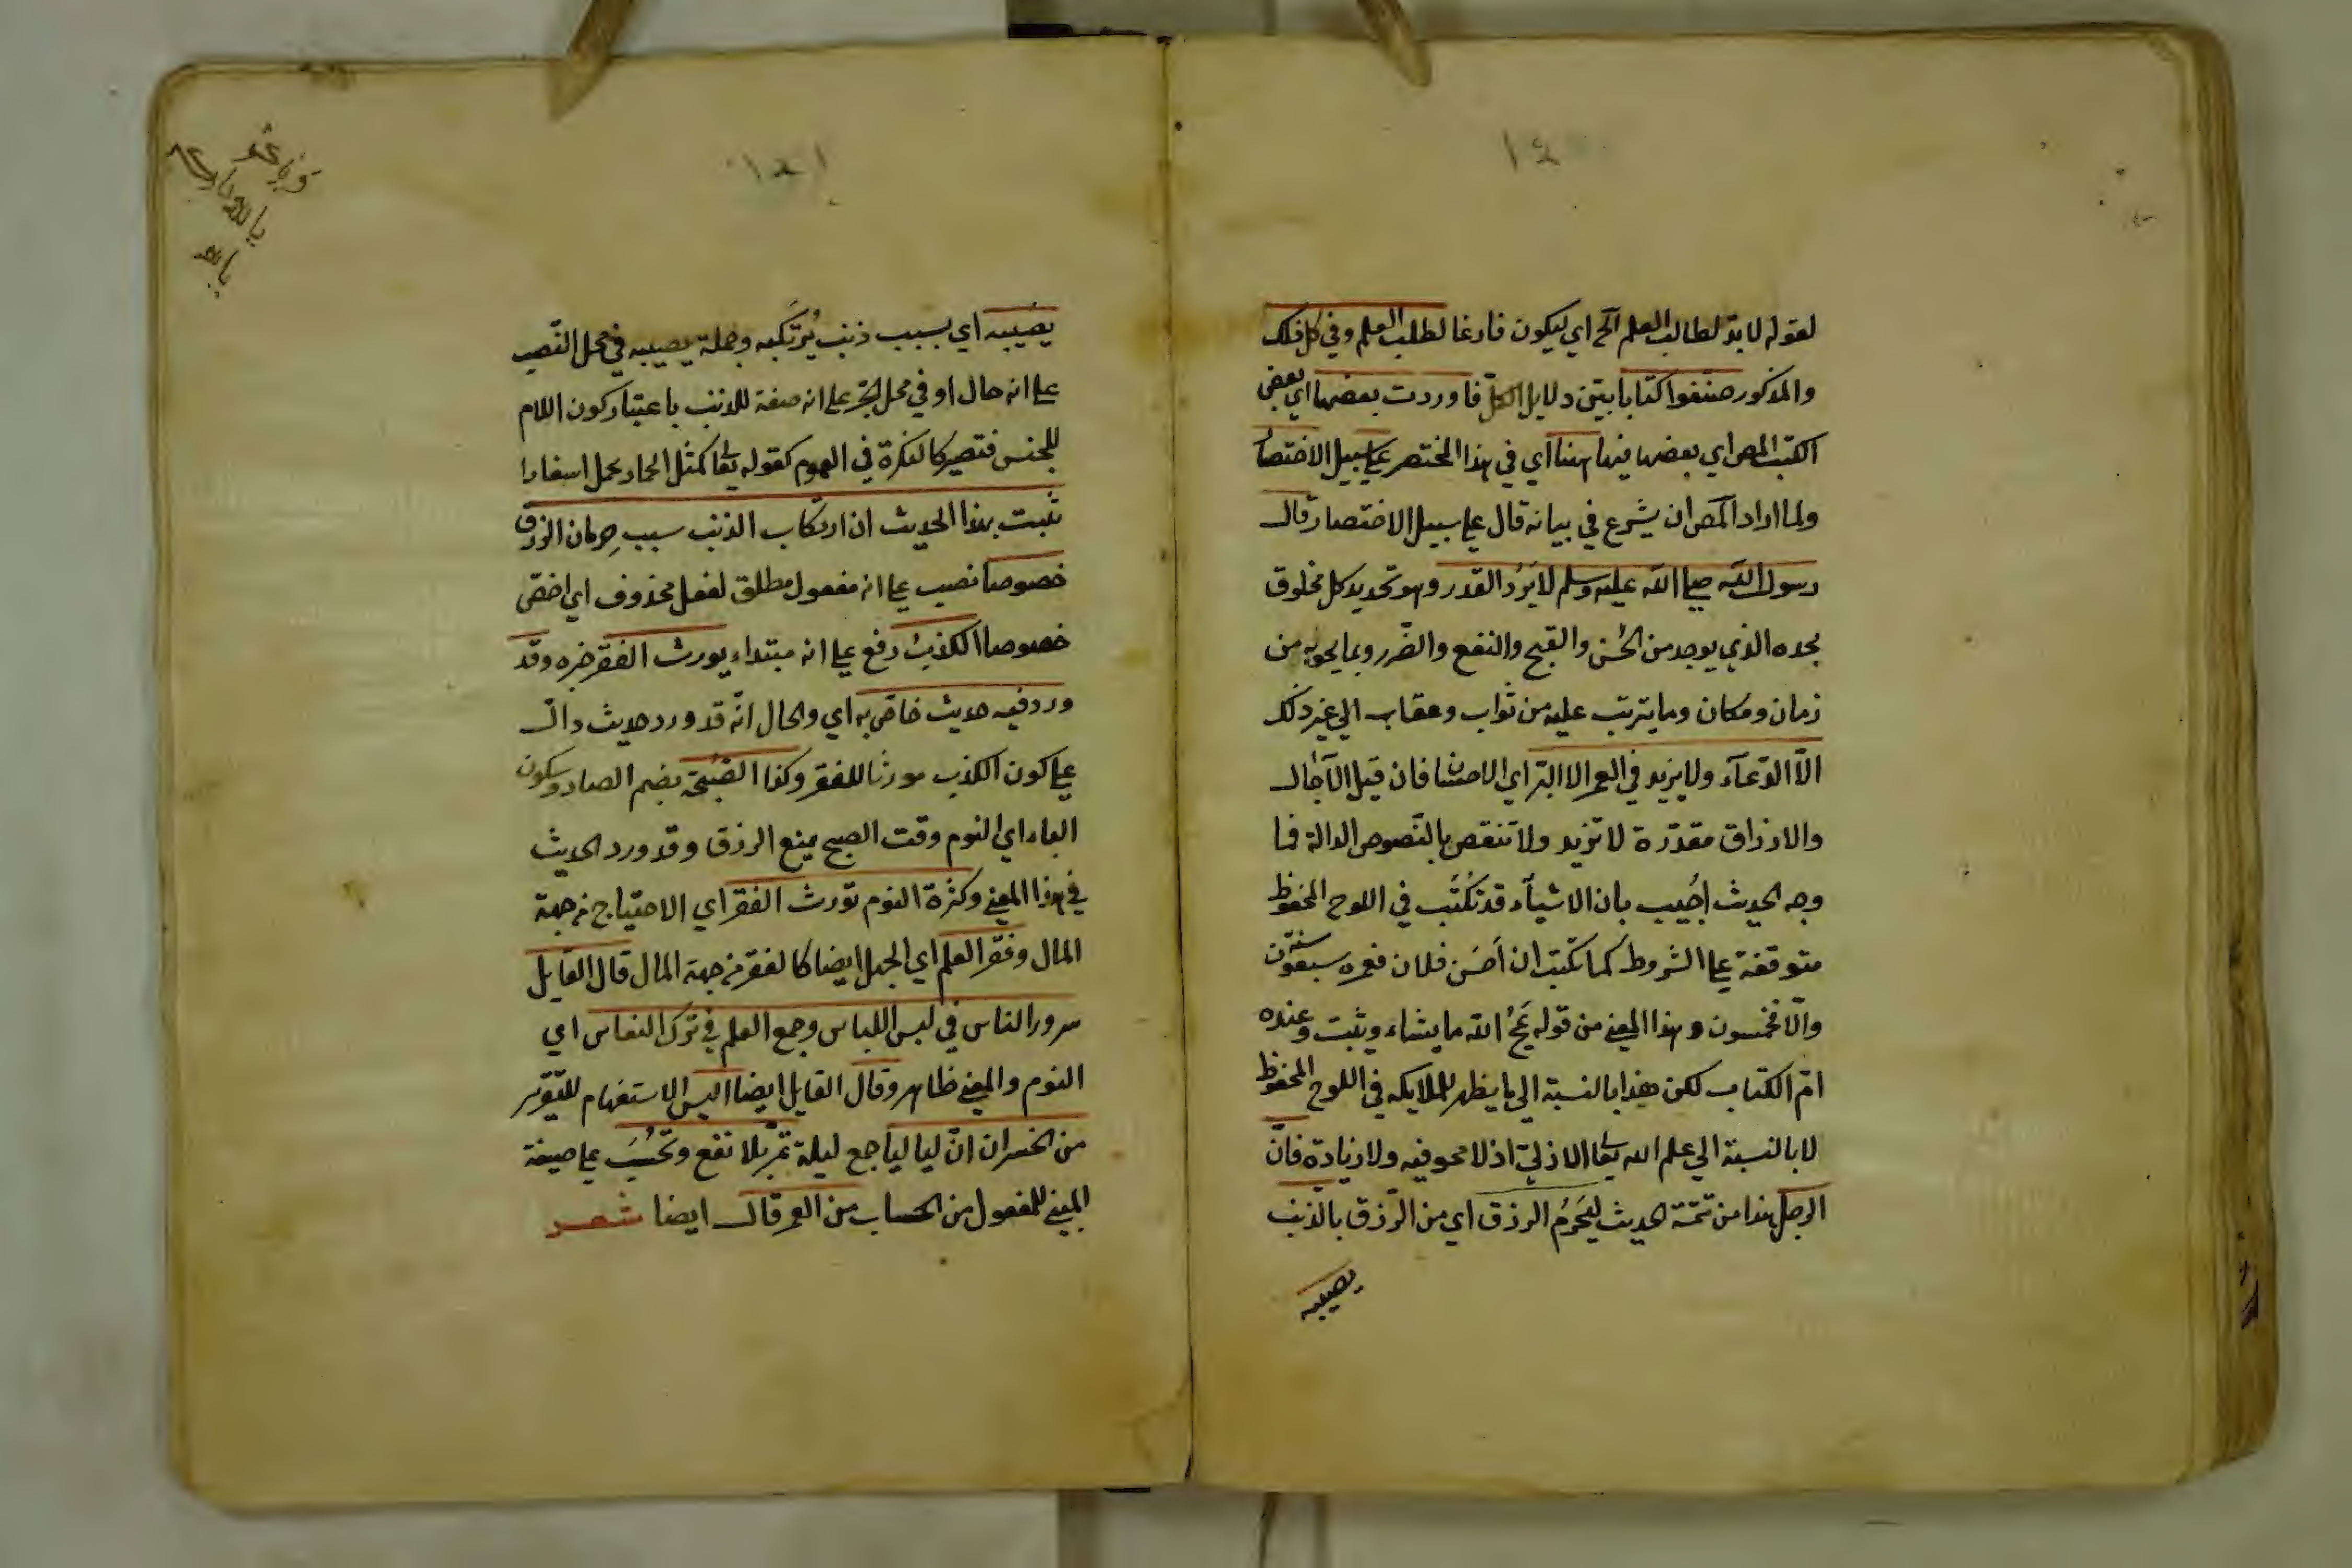 لقوله لا بد لطالب العلم الخ اي ليكون فارغا لطلب العلم وفي كل ذلك
والمذكور صنفوا كتابا بيّن دلايل الكل فاوردت بعضها اي بعض
الكتب المص اي بعضها منها ههنا اي في هذا المختصر على سبيل الاختصار
ولما اراد المص ان يشرع في بيانه قال على سبيل الاختصار قال
رسول الله صلى الله عليه وسلم لا يَرُد القدر وهو تحديد كل مخلوق
بحده الذي يوجد من الحُسن والقبح والنفع والضّرر وبما يحويه من
زمان ومكان وما يترتب عليه من ثواب وعقاب الي غير ذلك
الّا الدّعآء ولا يزيد في العمر الا البرّ اي الاحسان فان قيل الآجال
والارزاق مقدّرة لا تزيد ولا تنقص بالنّصوص الدالة فما
وجه الحديث اُجيب بان الاشيآء قد تُكتَب في اللوح المحفوظ
متوقفة على الشروط كما تكتب ان اَحسَن فلان فعمره سبعون سنة
والّا فخمسون وهذا المعنى من قوله يمحُ الله ما يشاء ويثبت وعنده
امّ الكتاب لكن هذا بالنسبة الي ما يظهر للملايكه في اللوح المحفوظ
لا بالنسبة الي علم الله تعالى الازليّ اذ لا محو فيه ولا زيادة فانّ
الرجل هذا من تتمّة الحديث ليَحرَمُ الرزق اي من الرّزق بالذّنب
يصيبه
١٤١
يصيبه اي بسبب ذنب يُرتَكبه وجملة يصيبه في محل النّصب
على انه حال او في محل الجر على انه صفة للذنب باعتبار كون اللام
للجنس فتصير كالنكرة في العموم كقوله تعالى كمثل الحمار يحمل اسفارا
ثبت بهذا الحديث ان ارتكاب الذنب سبب حِرمان الرزق
خصوصا نصب على انه مفعول مطلق لفعل محذوف اي اخصّ
خصوصا الكذبُ رفع على انه مبتداء يورث الفقر خبره وقد
ورد فيه حديث خاصّ به اي والحال انّه قد ورد حديث دالّ
على كون الكذب مورثا للفقر وكذا الصُّبْحة بضم الصاد وسكون
الباء اي النوم وقت الصبح يمنع الرزق وقد ورد الحديث
في هذا المعنى وكثرة النوم تورث الفقر اي الاحتياج من جهة
المال وفقر العلم اي الجهل ايضا كالفقر من جهة المال قال القايل
سرور الناس في لبس اللباس وجمع العلم في ترك النعاس اي
النوم والمعنى ظاهر وقال القايل ايضا اليس الاستفهام للتقرير
من الخسران انّ لياليا جمع ليلة تمرّ بلا نفع وتُحْسَب على صيغة
المبني للمفعول من الحساب من العمر قال ايضا شعر